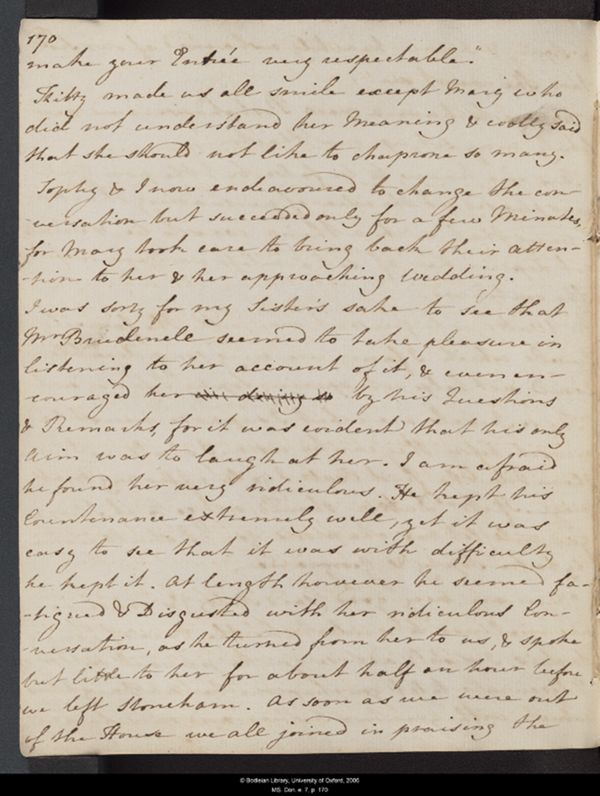 170
make your Entrée very respectable."
Kitty made us all smile except Mary who
did not understand her Meaning & coolly said
that she should not like to chaprone so many.
Sophy & I now endeavoured to change the con-
-versation but succeeded only for a few Minutes,
for Mary took care to bring back their atten-
-tion to her & her approaching Wedding.
I was sorry for my Sister's sake to see that
Mr Brudenell seemed to take pleasure in
listening to her account of it, & even en-
-couraged her by his Questions
& Remarks, for it was evident that his only
Aim was to laugh at her. I am afraid
he found her very ridiculous. He kept his
Countenance extremely well, yet it was
easy to see that it was with difficulty
he kept it. At length however he seemed fa-
-tigued & Disgusted with her ridiculous Con-
-versation, as he turned from her to us, & spoke
but little to her for about half an hour before
we left Stoneham. As soon as we were out
of the House we all joined in praising the
© Bodleian Library, University of Oxford, 2006
MS. Don. e. 7, p. 170